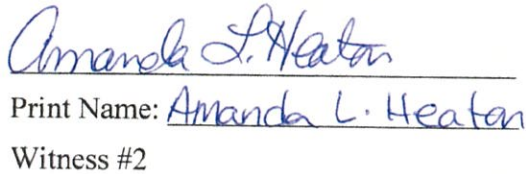 Amanda L. Heaton
Print Name: Amanda L. Heaton
Witness #2